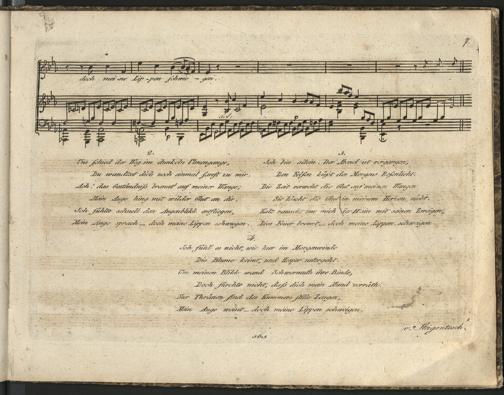 7.
doch meine Lip-pen schwei-gen.
2.
Uns schied der Weg im dunkeln Ulmengange,
Du wandtest dich noch einmal sanft zu mir.
Ach! das Geständniß brannt auf meiner Wange,
Mein Auge hing mit wilder Glut an dir.
Ich fühlte schnell den Augenblick entfliegen,
Mein Auge sprach _ doch meine Lippen schwiegen.
3.
Ich bin allein. Der Abend ist vergangen,
Den Felsen küßt des Morgens Rosenlicht.
Die Zeit verwischt die Glut auf meinen Wangen
Sie löscht die Glut in meinem Herzen nicht.
Kalt rauscht um mich der Hain mit seinen Zweigen,
Dies Feuer brennt _ doch meine Lippen schweigen
4.
Ich fühl' es nicht, wie hier im Morgenwinde
Die Blume keimt, und Hesper untergeht.
Um meinen Blick wand Schwermuth ihre Binde,
Doch fürchte nicht, daß dich mein Mund verräth.
Nur Thränen sind des Kummers stille Zeugen,
Mein Auge weint _ doch meine Lippen schweigen.